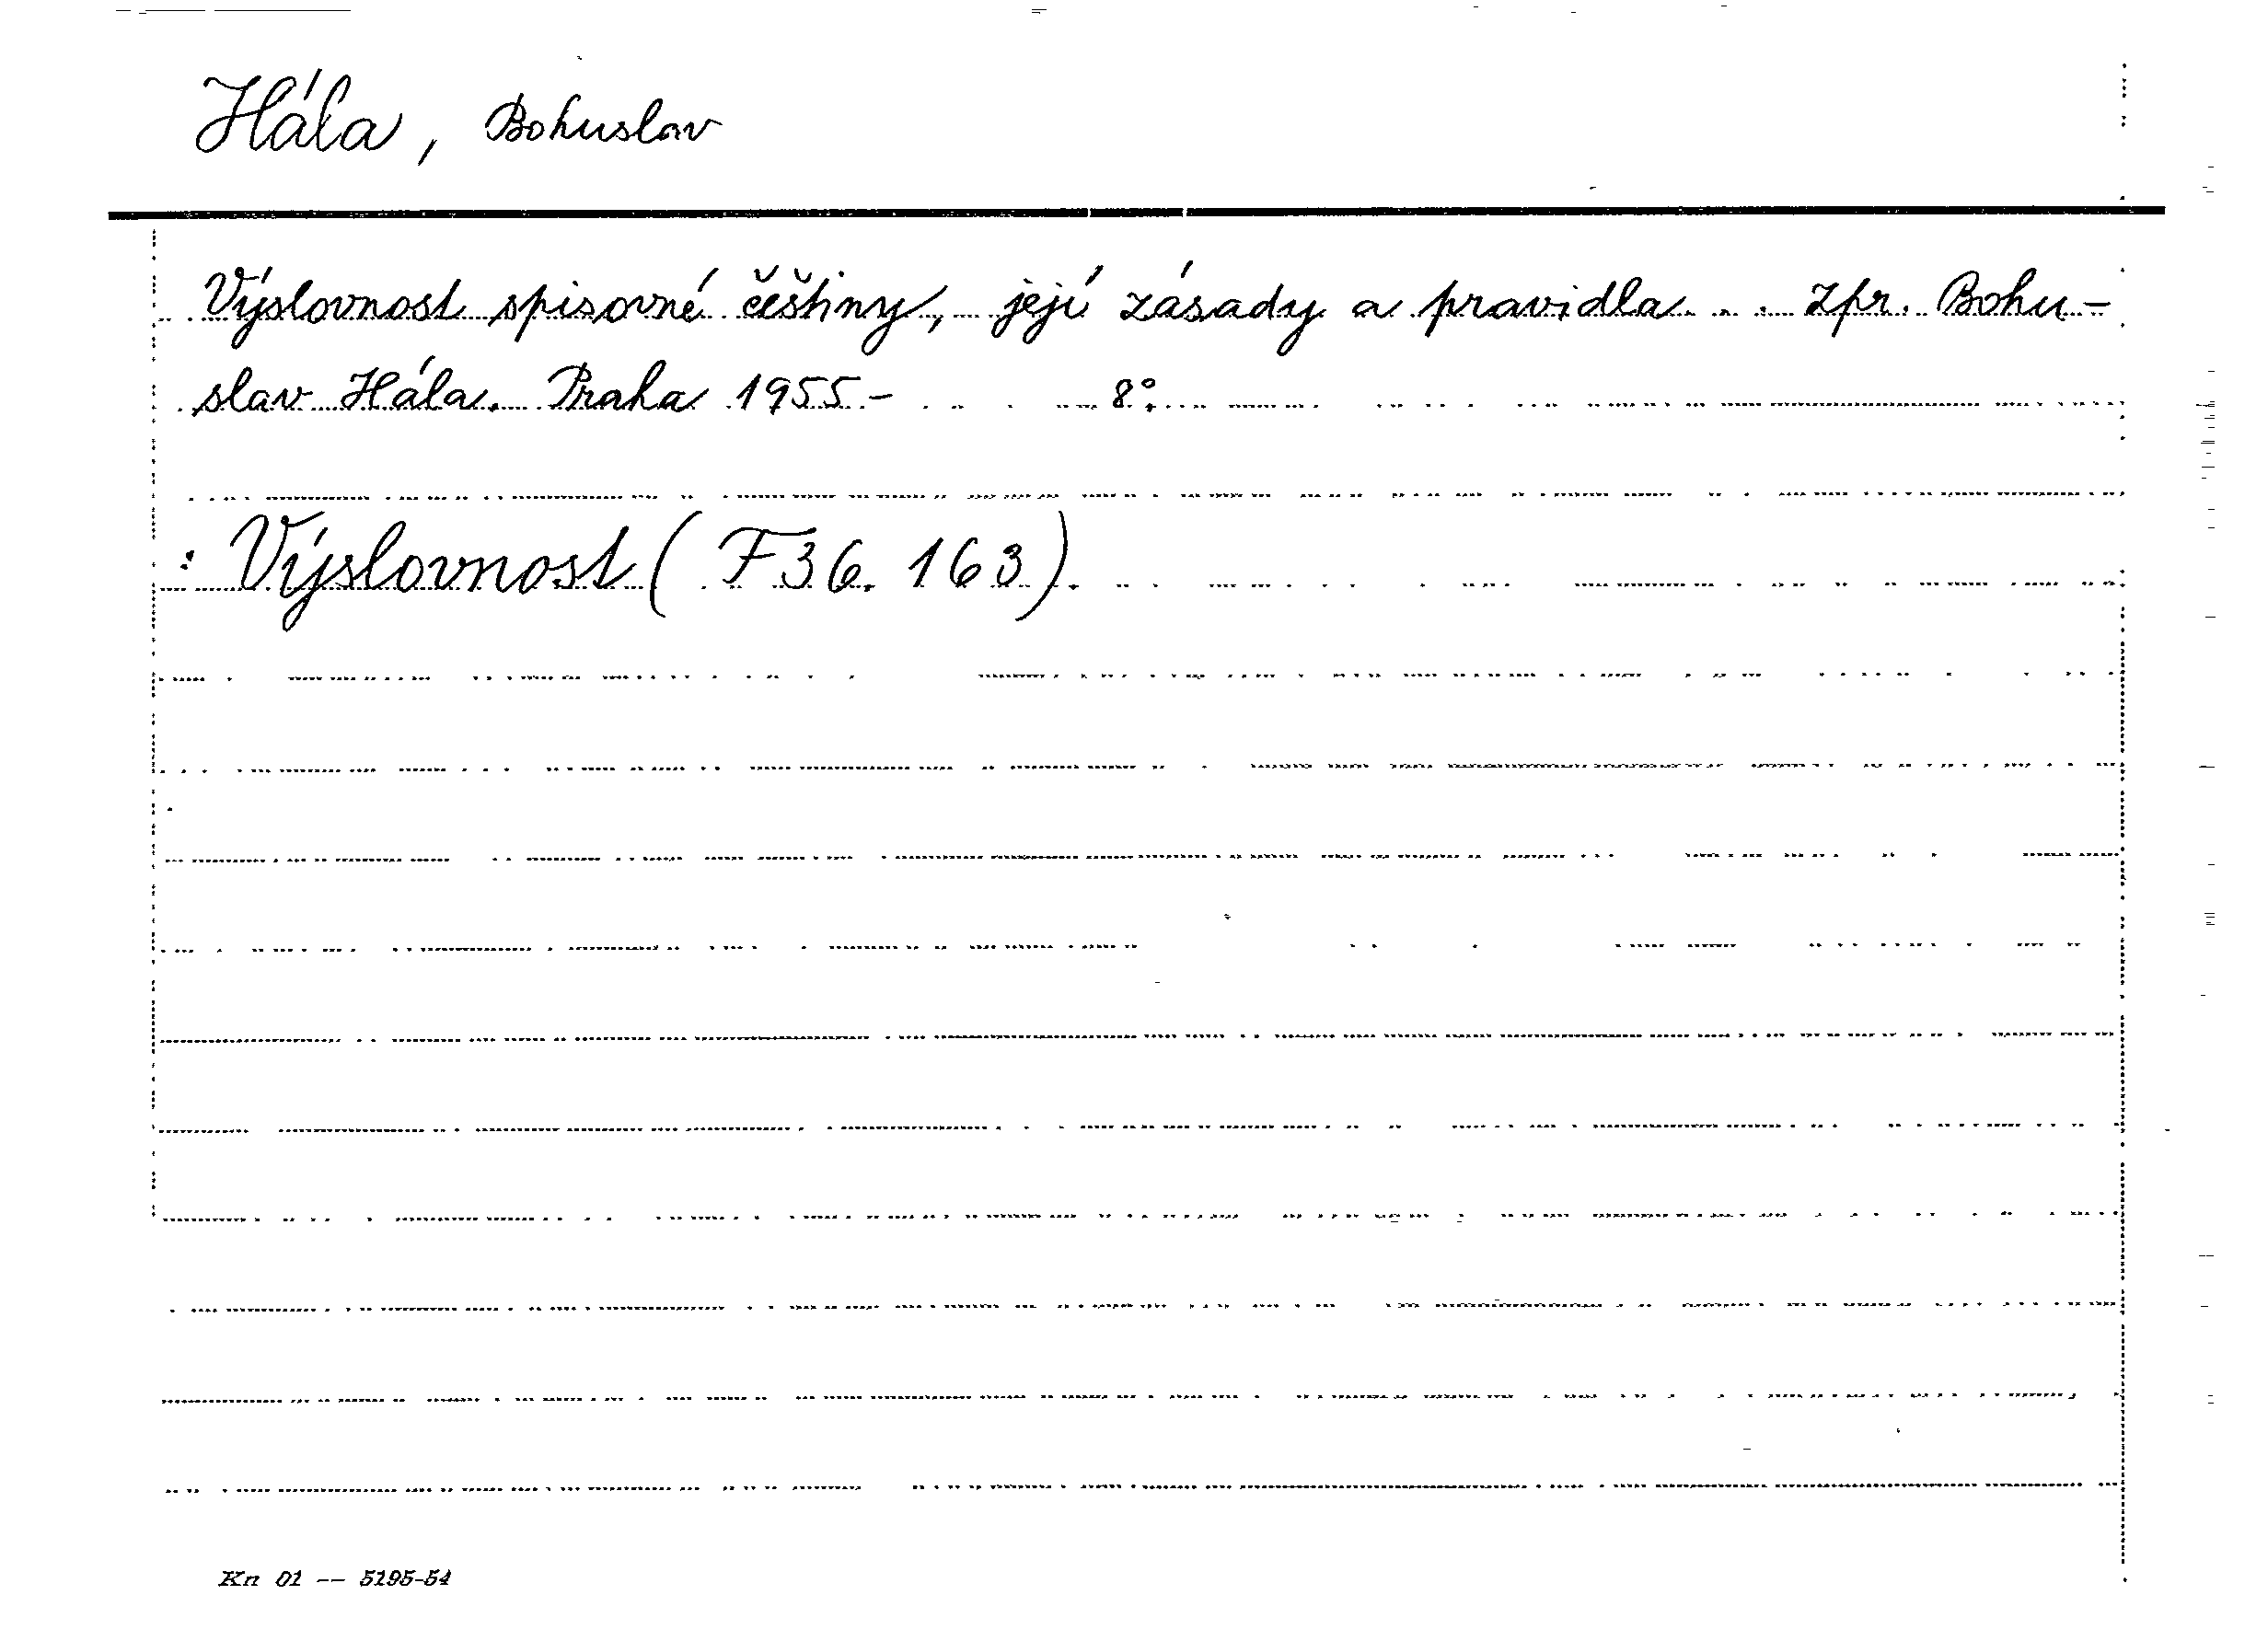 Hála, Bohuslav
Výslovnost spisovné češtiny, její zásady a pravidla . . . Zpr. Bohu-
slav Hála. Praha 1955- 8°.
: Výslovnost ( F 36. 163 ).
Kn 01 -- 5195-54